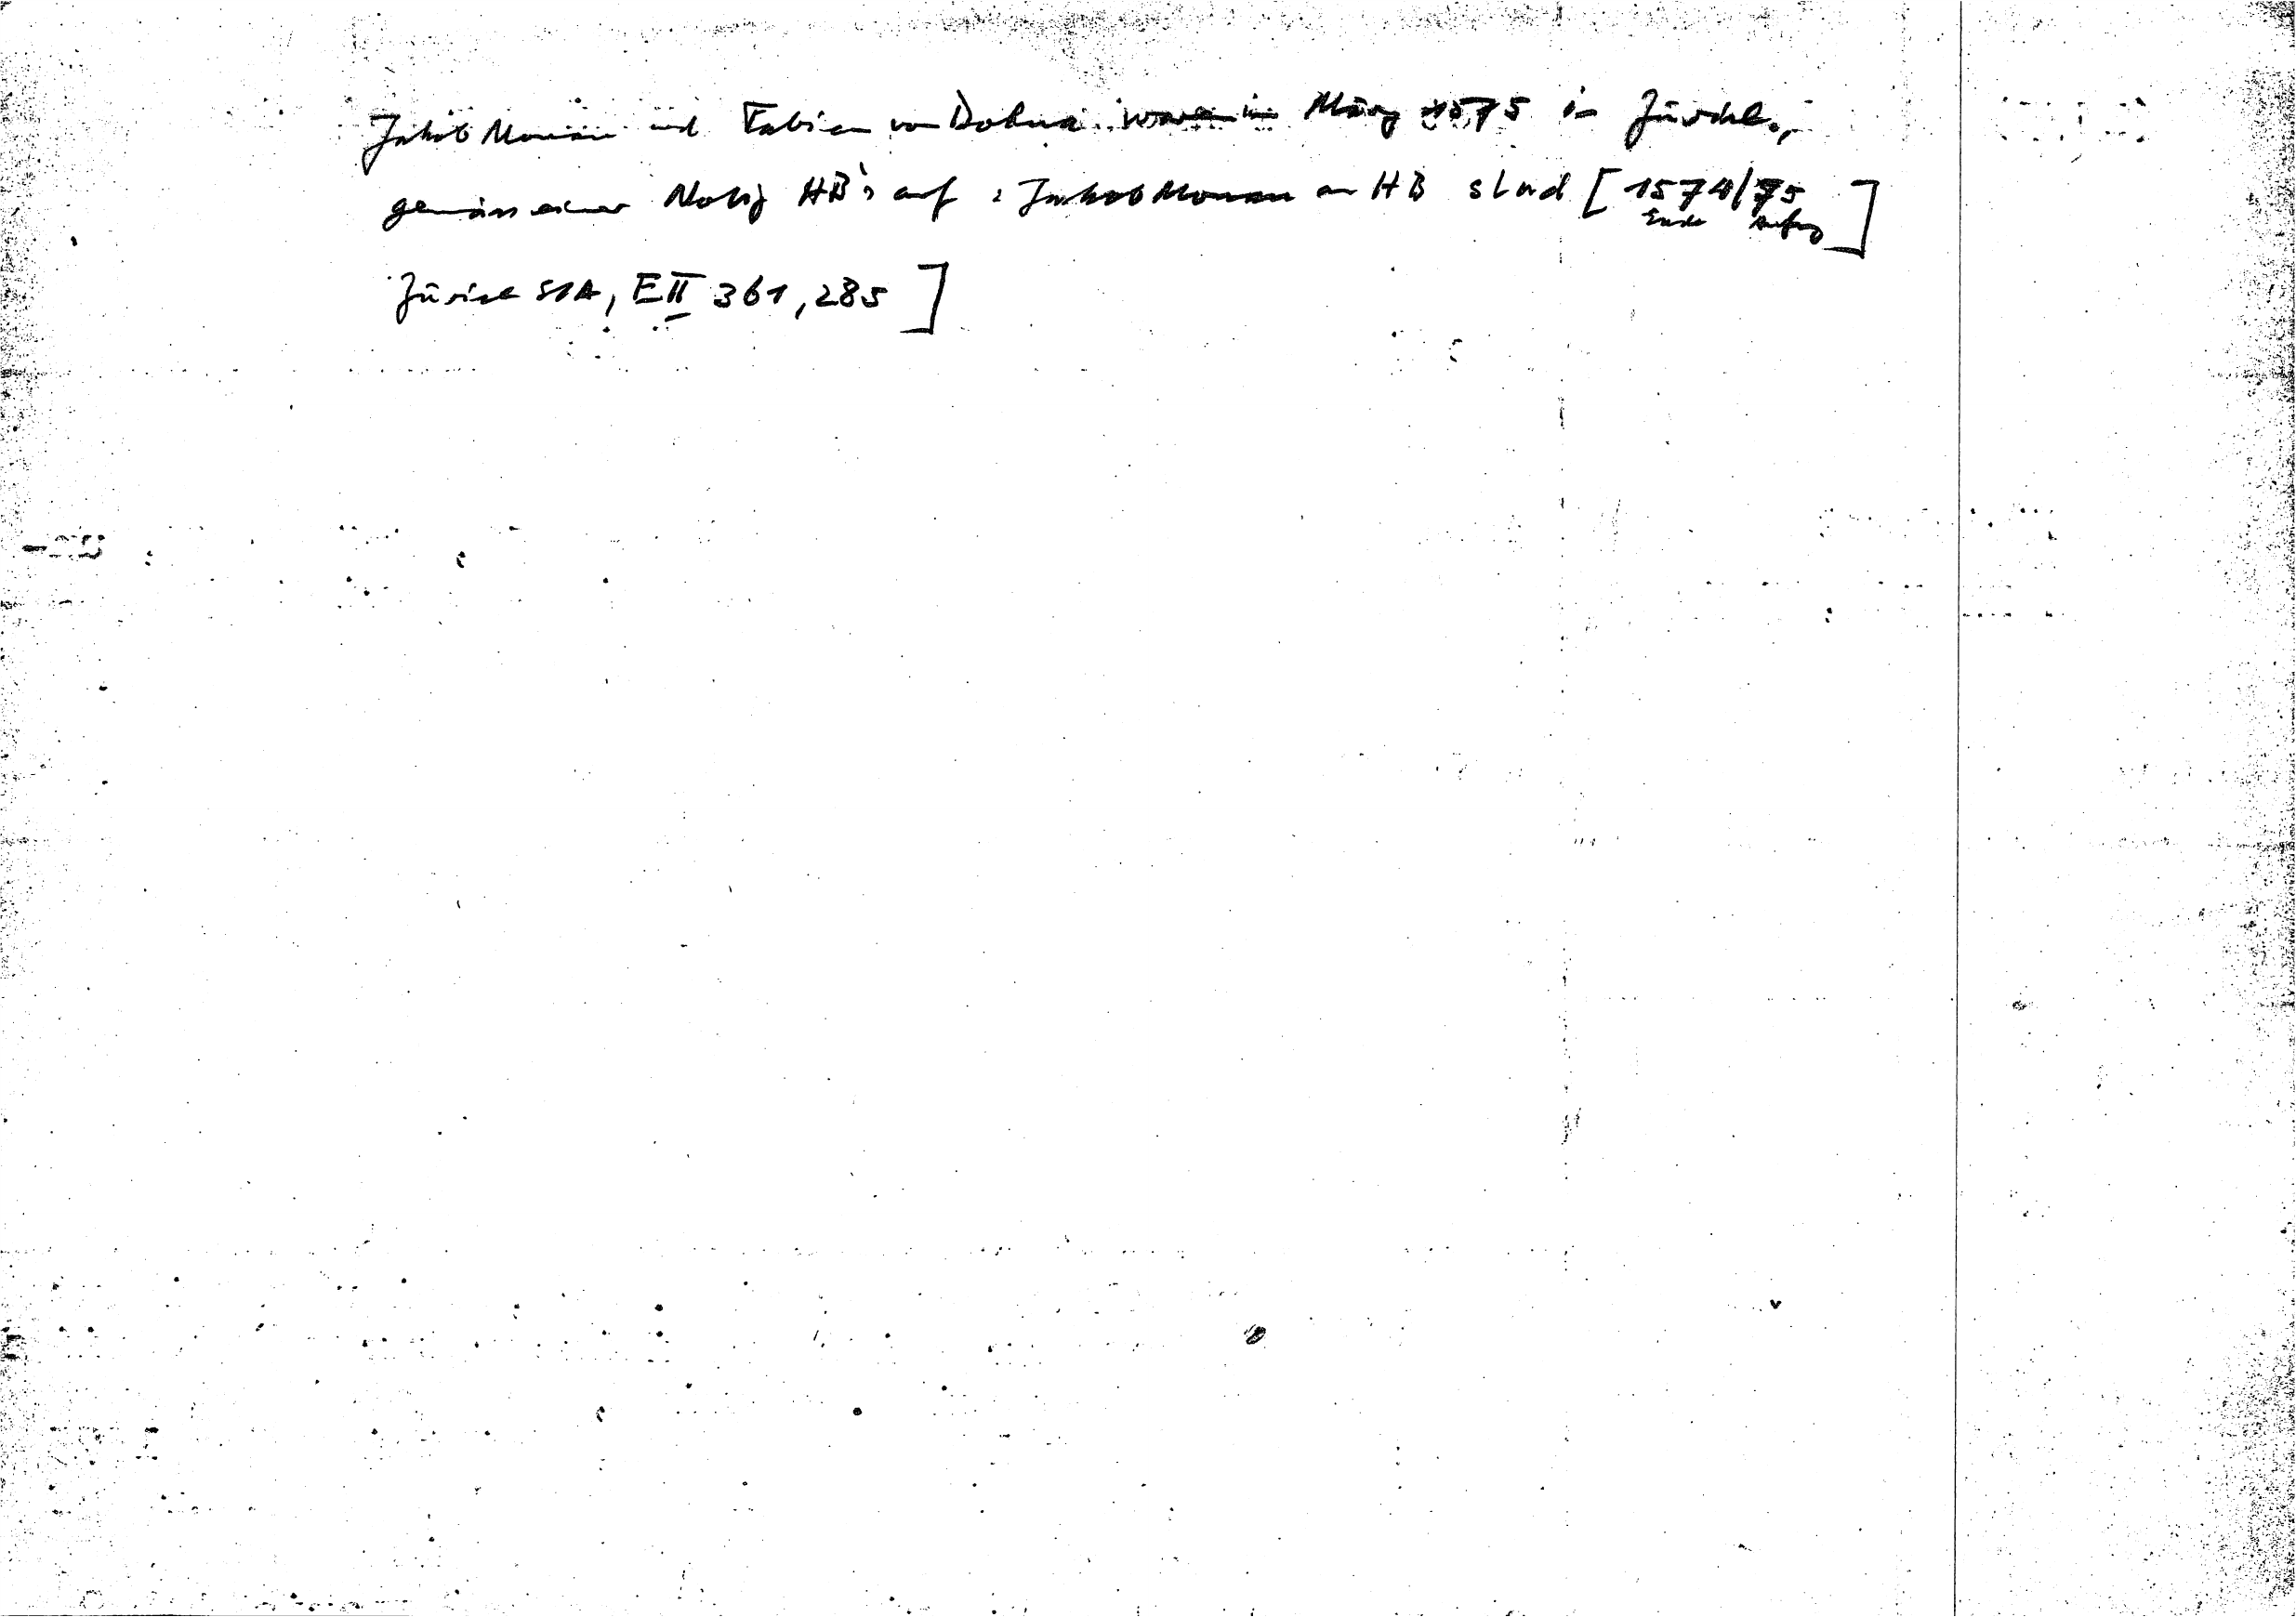 Jakob Monau und Fabian von Dohna waren im März 1575 in Zürich.,
gemäss einer Notiz HB's auf : Jakob Monau an HB s l und [1574/75]
Ende Anfang
Zürich StA, E II 361, 285]